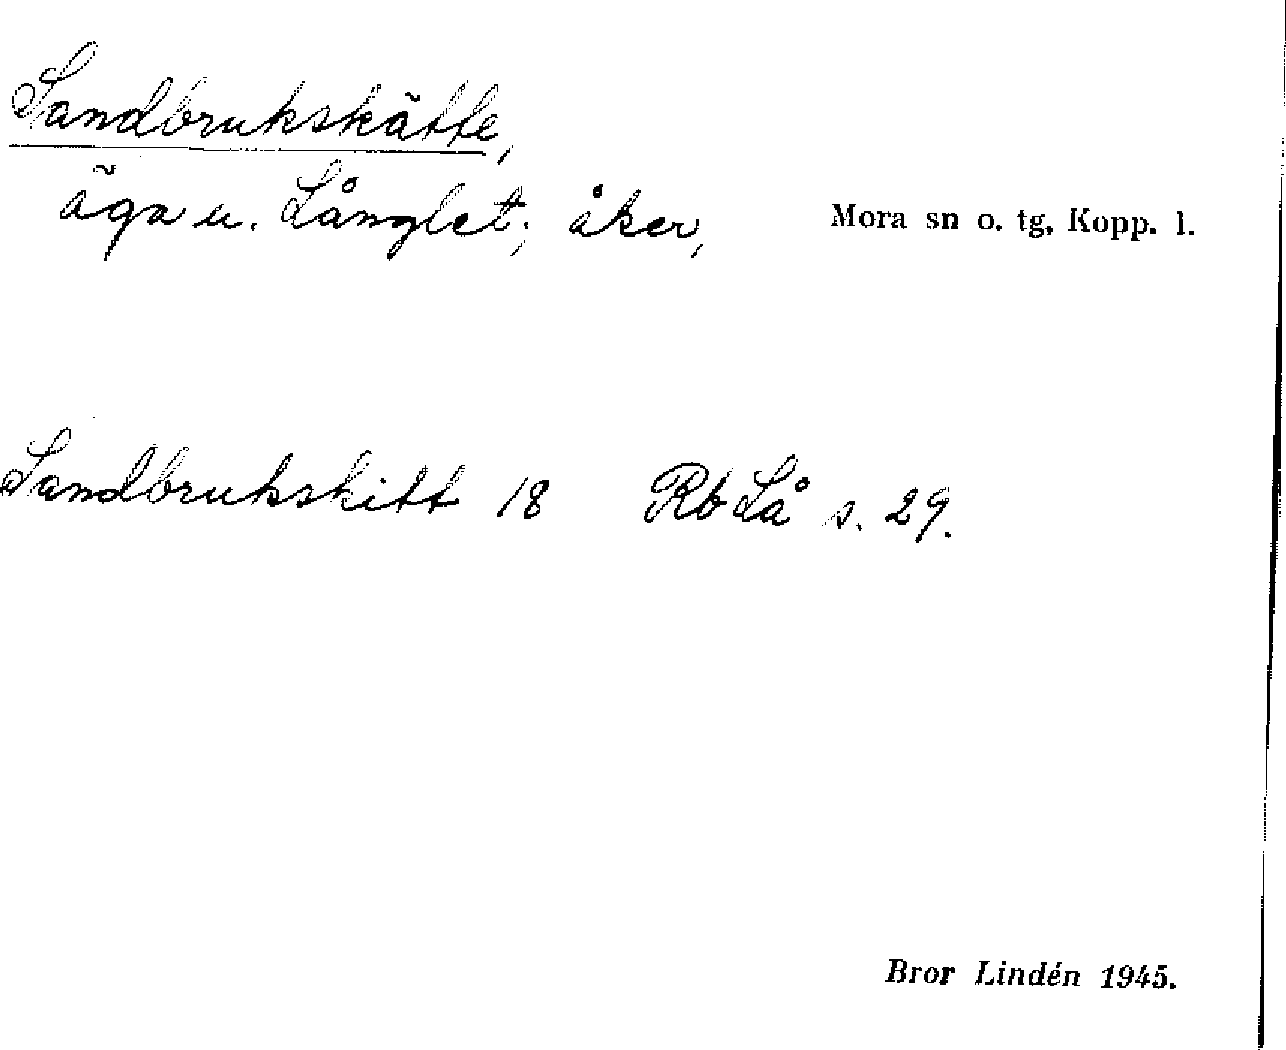 Sandbrukskätte,
äga u. Långlet; åker,
Mora sn o. tg, Kopp. l.
Sandbrukskitt 18 Rb Lå s. 29.
Bror Lindén 1945.